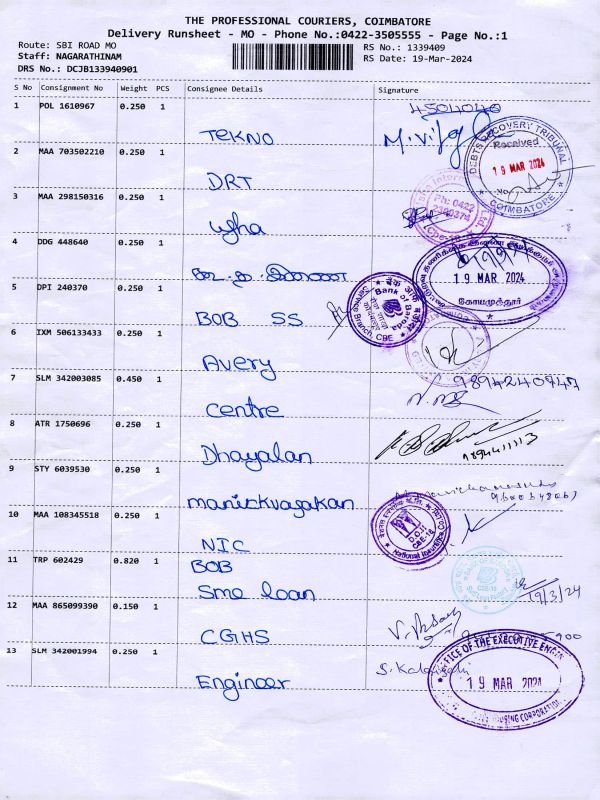 THE PROFESSIONAL COURIERS, COIMBATORE
Delivery Runsheet - MO - Phone No.:0422-3505555 - Page No.:1
Route: SBI ROAD MO
RS No.: 1339409
Staff: NAGARATHINAM
RS Date: 19-Mar-2024
DRS No.: DCJB133940901
S No Consignment No Weight PCS Consignee Details Signature
1 POL 1610967 0.250 1
TEKNO
2 MAA 703502210 0.250 1
DRT
DEBTS RECOVERY TRIBUNAL
Received
19 MAR 2024
COIMBATORE
3 MAA 298150316 0.250 1
Ph: 0422
2390374
Cbe-18
4 DDG 448640 0.250 1
19 MAR 2024
கோயமுத்தூர்
5 DPI 240370 0.250 1
BOB SS
Bank of Baroda
Service Branch, CBE
6 IXM 506133433 0.250 1
Avery
7 SLM 342003085 0.450 1
9894240747
Centre
8 ATR 1750696 0.250 1
Dhayalan
9894411113
9 STY 6039530 0.250 1
manickvasakan
10 MAA 108345518 0.250 1
NIC
D.O.II
CBE-18
11 TRP 602429 0.820 1
BOB
Sme loan
19/3/24
12 MAA 865099390 0.150 1
CGHS
13 SLM 342001994 0.250 1
Engineer
OFFICE OF THE EXECUTIVE ENGIN
19 MAR 2024
HOUSING CORPORATION